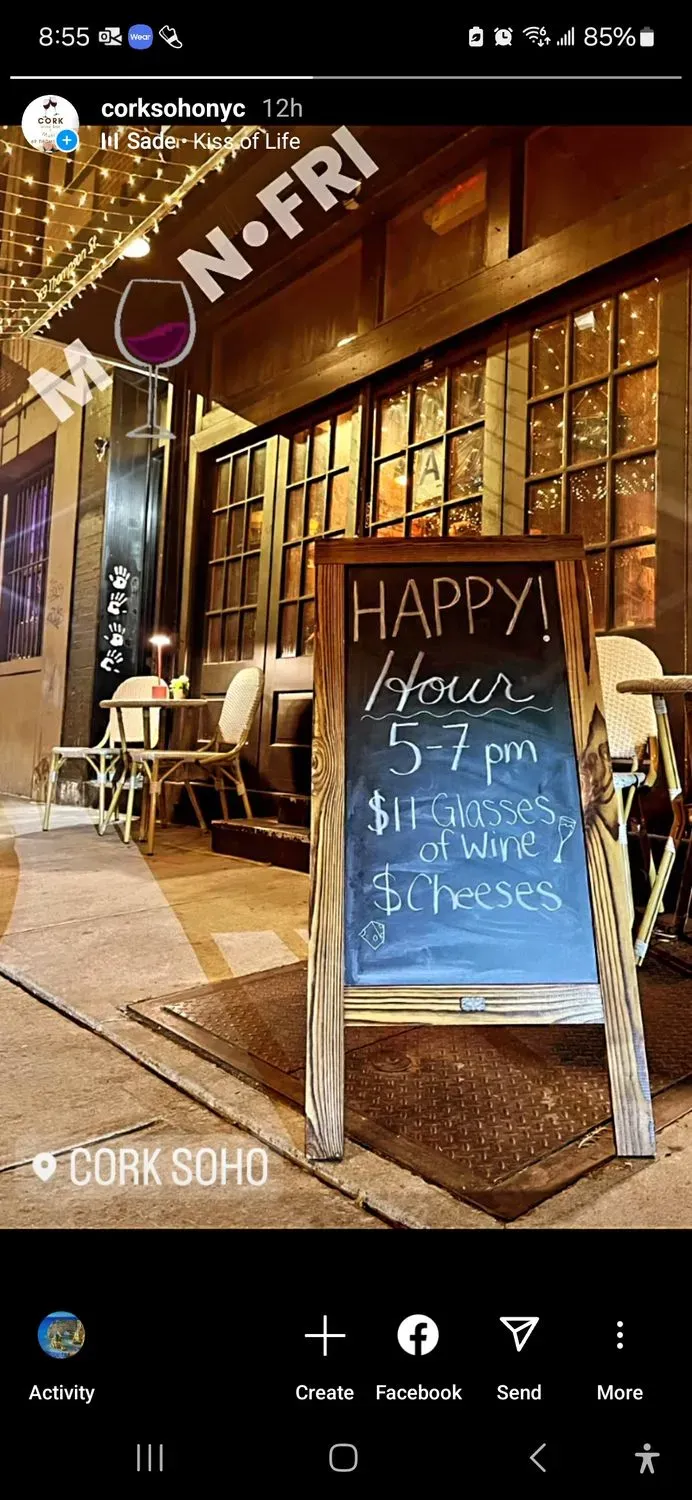 8:55
Wear
85%
corksohonyc 12h
CORK
Sade • Kiss of Life
M N•FRI
A
HAPPY!
Hour
5-7 pm
$11 Glasses
of Wine
$Cheeses
CORK SOHO
Activity
Create
Facebook
Send
More